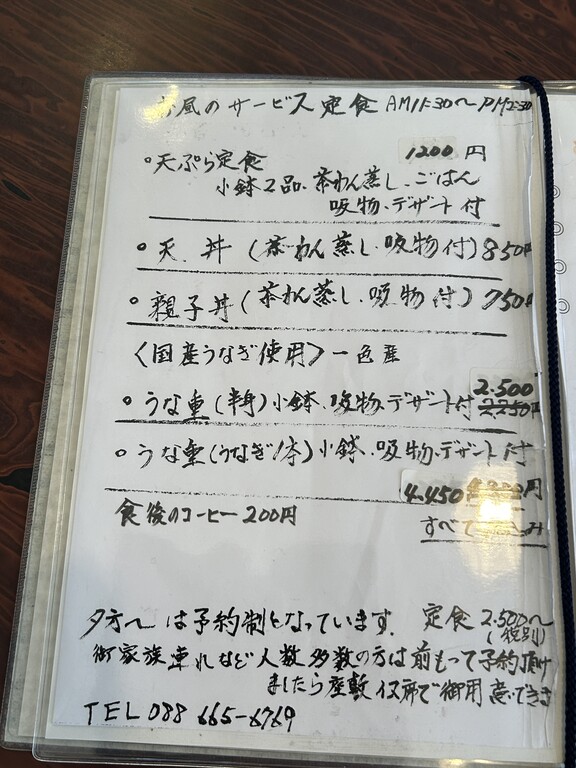 お昼のサービス定食 AM11:30〜PM2:30
○天ぷら定食 1200円
小鉢2品、茶わん蒸し、ごはん
吸物、デザート付
○天丼 (茶わん蒸し、吸物付) 850円
○親子丼 (茶わん蒸し、吸物付) 750円
〈国産うなぎ使用〉一色産
2.500
○うな重(半身)小鉢、吸物、デザート付
○うな重(うなぎ1本)小鉢、吸物、デザート付
4.450 円
食後のコーヒー200円
すべて税込み
夕方〜は予約制となっています。 定食 2.500〜
(税別)
御家族連れなど人数多数の方は前もって予約頂け
ましたら座敷 で御用意できます
TEL 088 665-6769